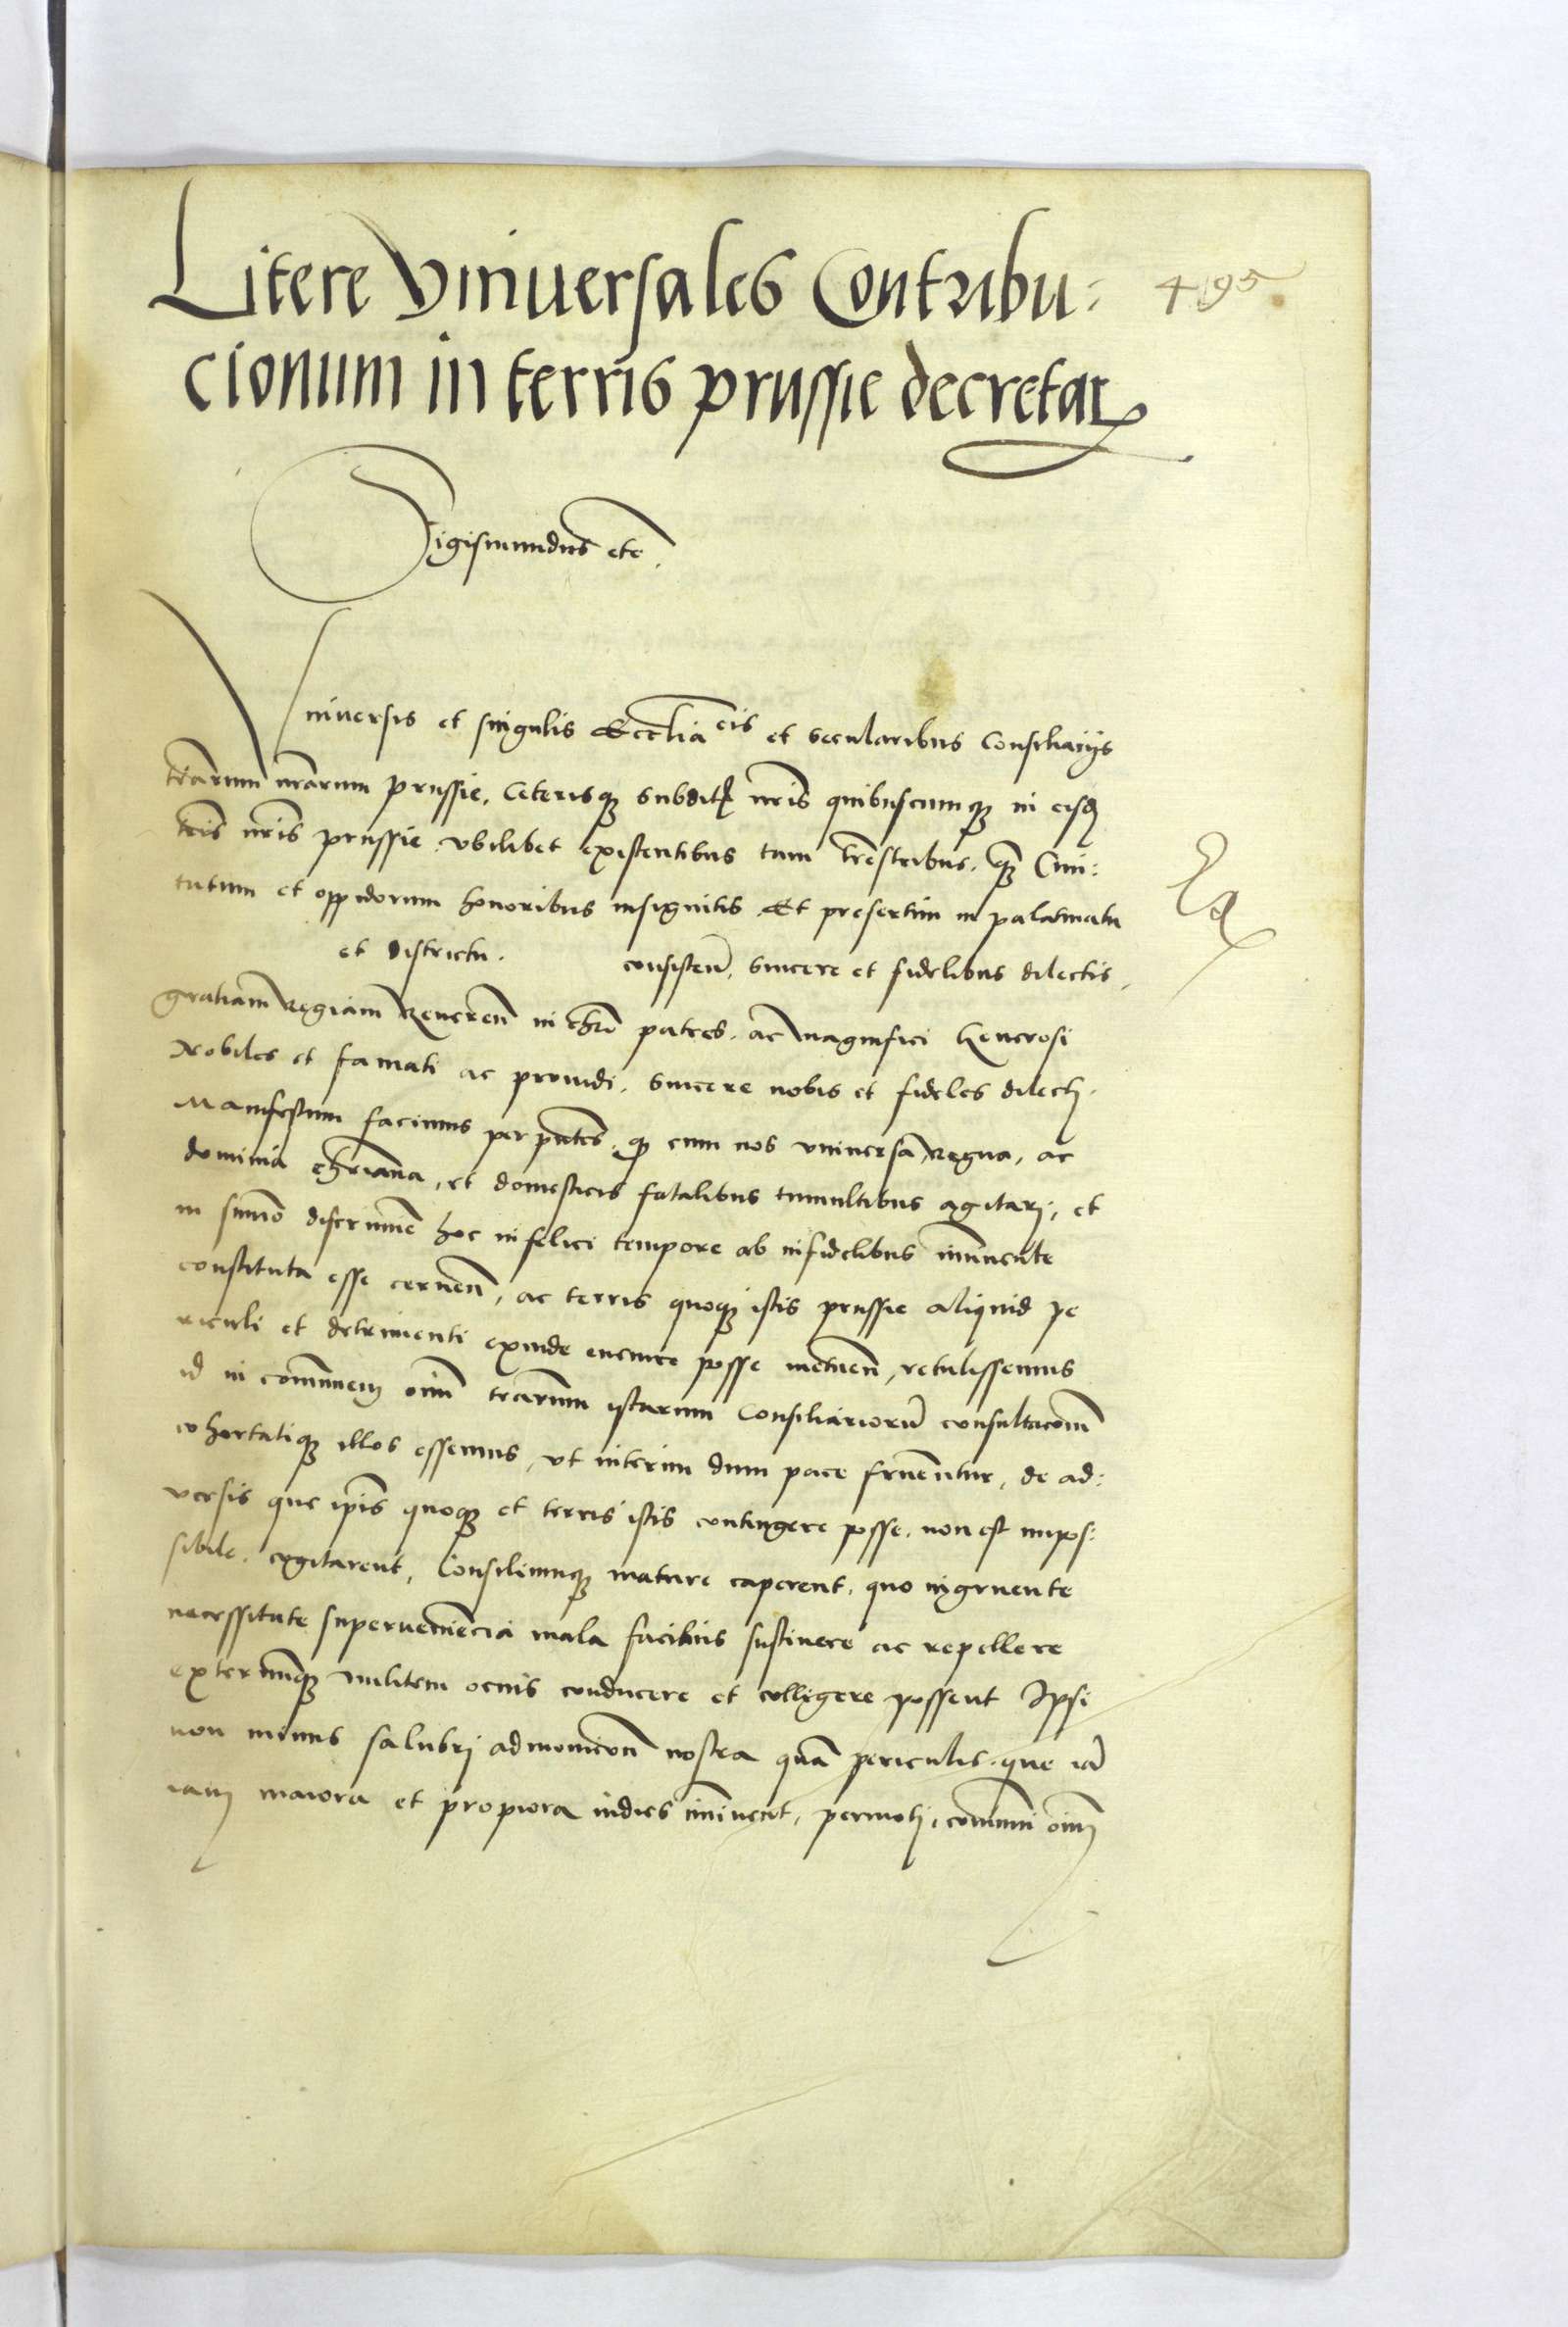 Litere Vniuersales Contribu:
495
cionum in terris prussie decretaꝝ
Sigismundus etc.
Vniuersis et singulis Eccl̄ia eis et secularibus Consiliarijs
tr̄arum nr̄arum prussie, Ceterisqꝫ subditꝭ nr̄is quibuscumqꝫ in eisdꝫ
tr̄is nr̄is prussie vbilibet existentibus tam tr̄estribus qꝫ Ciui:
tatum et oppidorum honoribus insignitis Et presertim in palatinatu
et districtu. consisteñ, sincere et fidelibus dilectis,
gratiam Regiam Reuereñ in chr̄o patres ac Magnifici Generosi
Nobiles et famati ac prouidi, sincere nobis et fideles dilecti.
Manifestum facimus per pn̄tes qꝫ cum nos vniuersa Regna, ac
dominia chr̄iana, et domesticis fatalibus tumultibus agitarj, et
in sum̄o discrimine hoc infelici tempore ab infidelibus im̄inente
constituta esse cerneñ, ac terris quoqꝫ istis prussie aliquid pe
riculi et detrimenti exinde euenire posse metueñ, retulissemus
id in com̄unem oīm tr̄arum istarum Consiliariorū consultacōem
cohortatiqꝫ illos essemus, vt interim dum pace fruentur, de ad:
uersis que ip̄is quoqꝫ et terris istis contingere posse non est impos:
sibile cogitarent, Consiliumqꝫ mature caperent, quo ingruente
necessitate superueniencia mala facilius sustinere ac repellere
externumqꝫ militem ocius conducere et colligere possent Ipsi
non minus salubrj admonicōn nostra quā periculis que iā
iam maiora et propiora indies im̄inent, permotj, com̄uni oīm